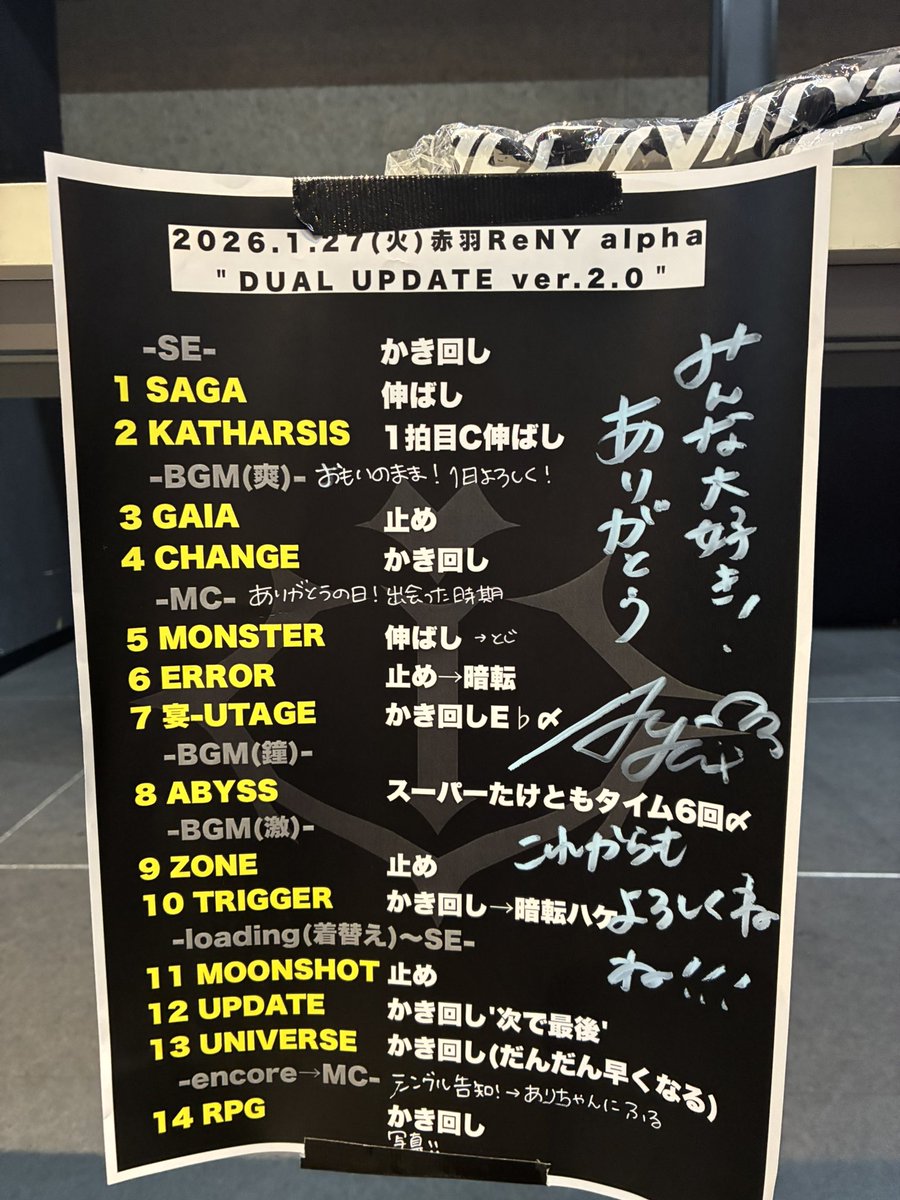 2026.1.27(火)赤羽ReNY alpha
"DUAL UPDATE ver.2.0"
-SE- かき回し
1 SAGA 伸ばし
2 KATHARSIS 1拍目C伸ばし
-BGM(爽)- おもいのまま！1日よろしく！
3 GAIA 止め
4 CHANGE かき回し
-MC- ありがとうの日！出会った時期
5 MONSTER 伸ばし →とじ
6 ERROR 止め→暗転
7 宴-UTAGE かき回しE♭〆
-BGM(鐘)-
8 ABYSS スーパーたけともタイム6回〆
-BGM(激)-
9 ZONE 止め
10 TRIGGER かき回し→暗転ハケ
-loading(着替え)〜SE-
11 MOONSHOT 止め
12 UPDATE かき回し'次で最後'
13 UNIVERSE かき回し(だんだん早くなる)
-encore→MC- 告知!→ありちゃんにふる
14 RPG かき回し
写真!!
みんな大好き！
ありがとう
これからも
よろしくね
ね!!!